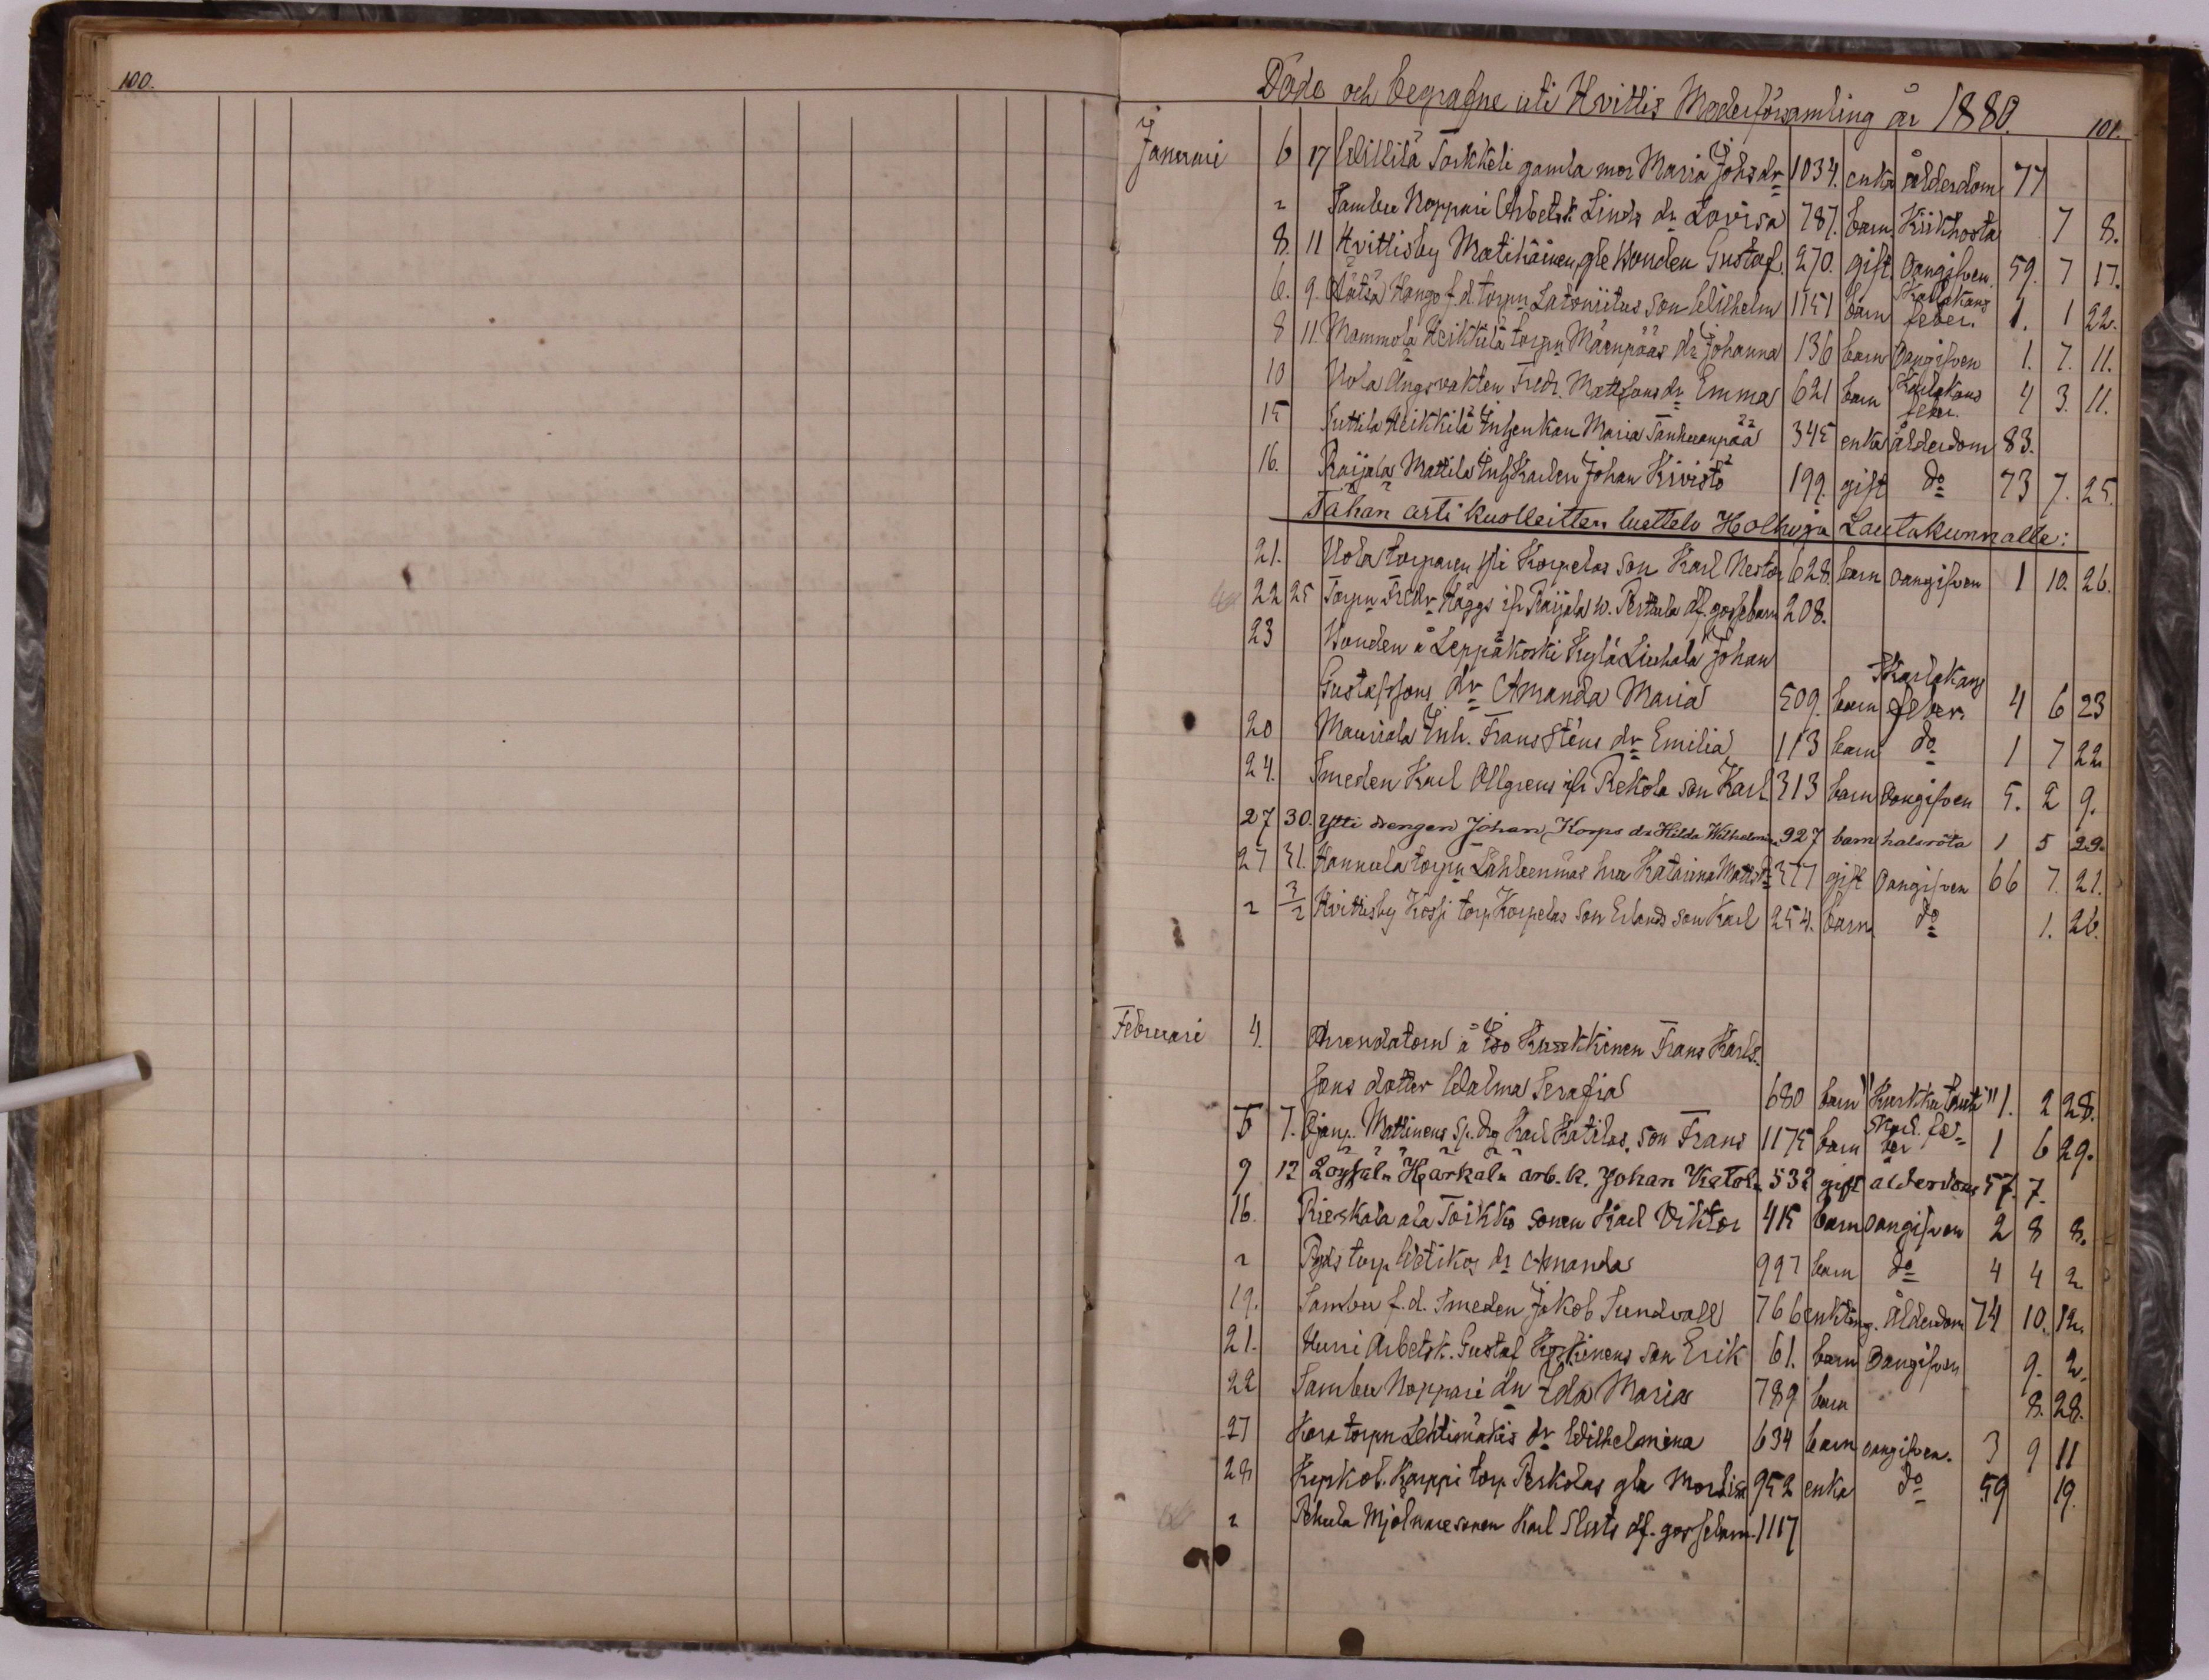 100.
Döde och begrafne uti Hvittis Moderförsamling år 1880. 101.
Januari 6 17 Willilä Torkkeli gamla mor Maria Johsdr 1034. enka ålderdom 77
Sambu Noppari Arbetsk. Linds dr Lovisa 787. barn Kikhosta 7 8.
8. 11 Hvittisby Matikainen gle Bonden Gustaf 270. gift Oangifven. 59. 7 17.
6. 9. Hango f.d. torpn Latoniitus son Wilhelm 1151 barn Skarlakans feber. 1. 1 22.
8 11. Mommola Heikkilä torpn Mäenpääs dr Johanna 136 barn Oangifven 1. 7. 11.
10 Nola Ängsvakten Fredr. Mattssons dr Emma 621 barn Skarlakans feber. 4 3. 11.
15 Suttila Heikkilä Inh enkan Maria Tanhuanpää 345 enka ålderdom 83.
16. Raijala Mattila Inh Karlen Johan Kivistö 199. gift do 73 7. 25.
Tähän asti kuolleitten luettelo Holhoja Lautakunnalle:
21. Nola torparen Yli Korpelas son Karl Nestor 628. barn oangifven 1 10. 26.
22 25 Torpn Fredr Häggs ifr Raijala w. Perttula df. gossebarn 208.
23 Bonden å Leppäkoski Kylä Liuhala Johan
Gustafssons dr Amanda Maria 509. barn Skarlakans feber. 4 6 23
20 Mauriala Inh. Frans Sténs dr Emilia 113 barn do 1 7 22
24. Smeden Karl Allgrens ifr Rekola son Karl 313 barn Oangifven 5. 2 9.
27 30. Ytti drengen Johan Korps dr Hilda Wilhelmina 927 barn halsröta 1 5 29.
27 31. Hannula torpn Lähteenmäs hru Katarina Mattsdr 377 gift Oangifven 66 7. 21.
3/2 Hvittisby Kossi torp Korpelas Son Erlands son Karl 254. barn do 1. 26.
Februari 4. Arrendatorn å Iso Kuukkinen Frans Karls-
sons dotter Walma Serafia 680 barn "Kurkkutauti" 1. 2 28.
5 7. Mattinens Karl Katilas son Frans 1175 barn Skarl. feber 1 6 29.
9 12 Loysala Harkala arb. k. Johan 532 gift alderdom 57. 7.
16. Rieskala ala Torkko sonen Karl Viktor 415 barn Oangifven 2 8 8.
torp Wetikos dr Amanda 997 barn do 4 4 2
19. Sambu f.d. Smeden Jakob Sundvall 766 enkling. Ålderdom 74 10. 12.
21. Hurri Arbetsk. Gustaf Koskinens son Erik 61. barn Oangifven 9. 2.
22 Sambu Noppari dn Ida Maria 789 barn 8. 28.
27 torpn Lehtimäkis dr Wilhelmina 634 barn oangifven. 3 9 11
28 Karppi torp. Perkolas gla Mor Lisa 952 enka do 59 19.
Pehula Mjölnaresonen Karl df. gossebarn. 1117